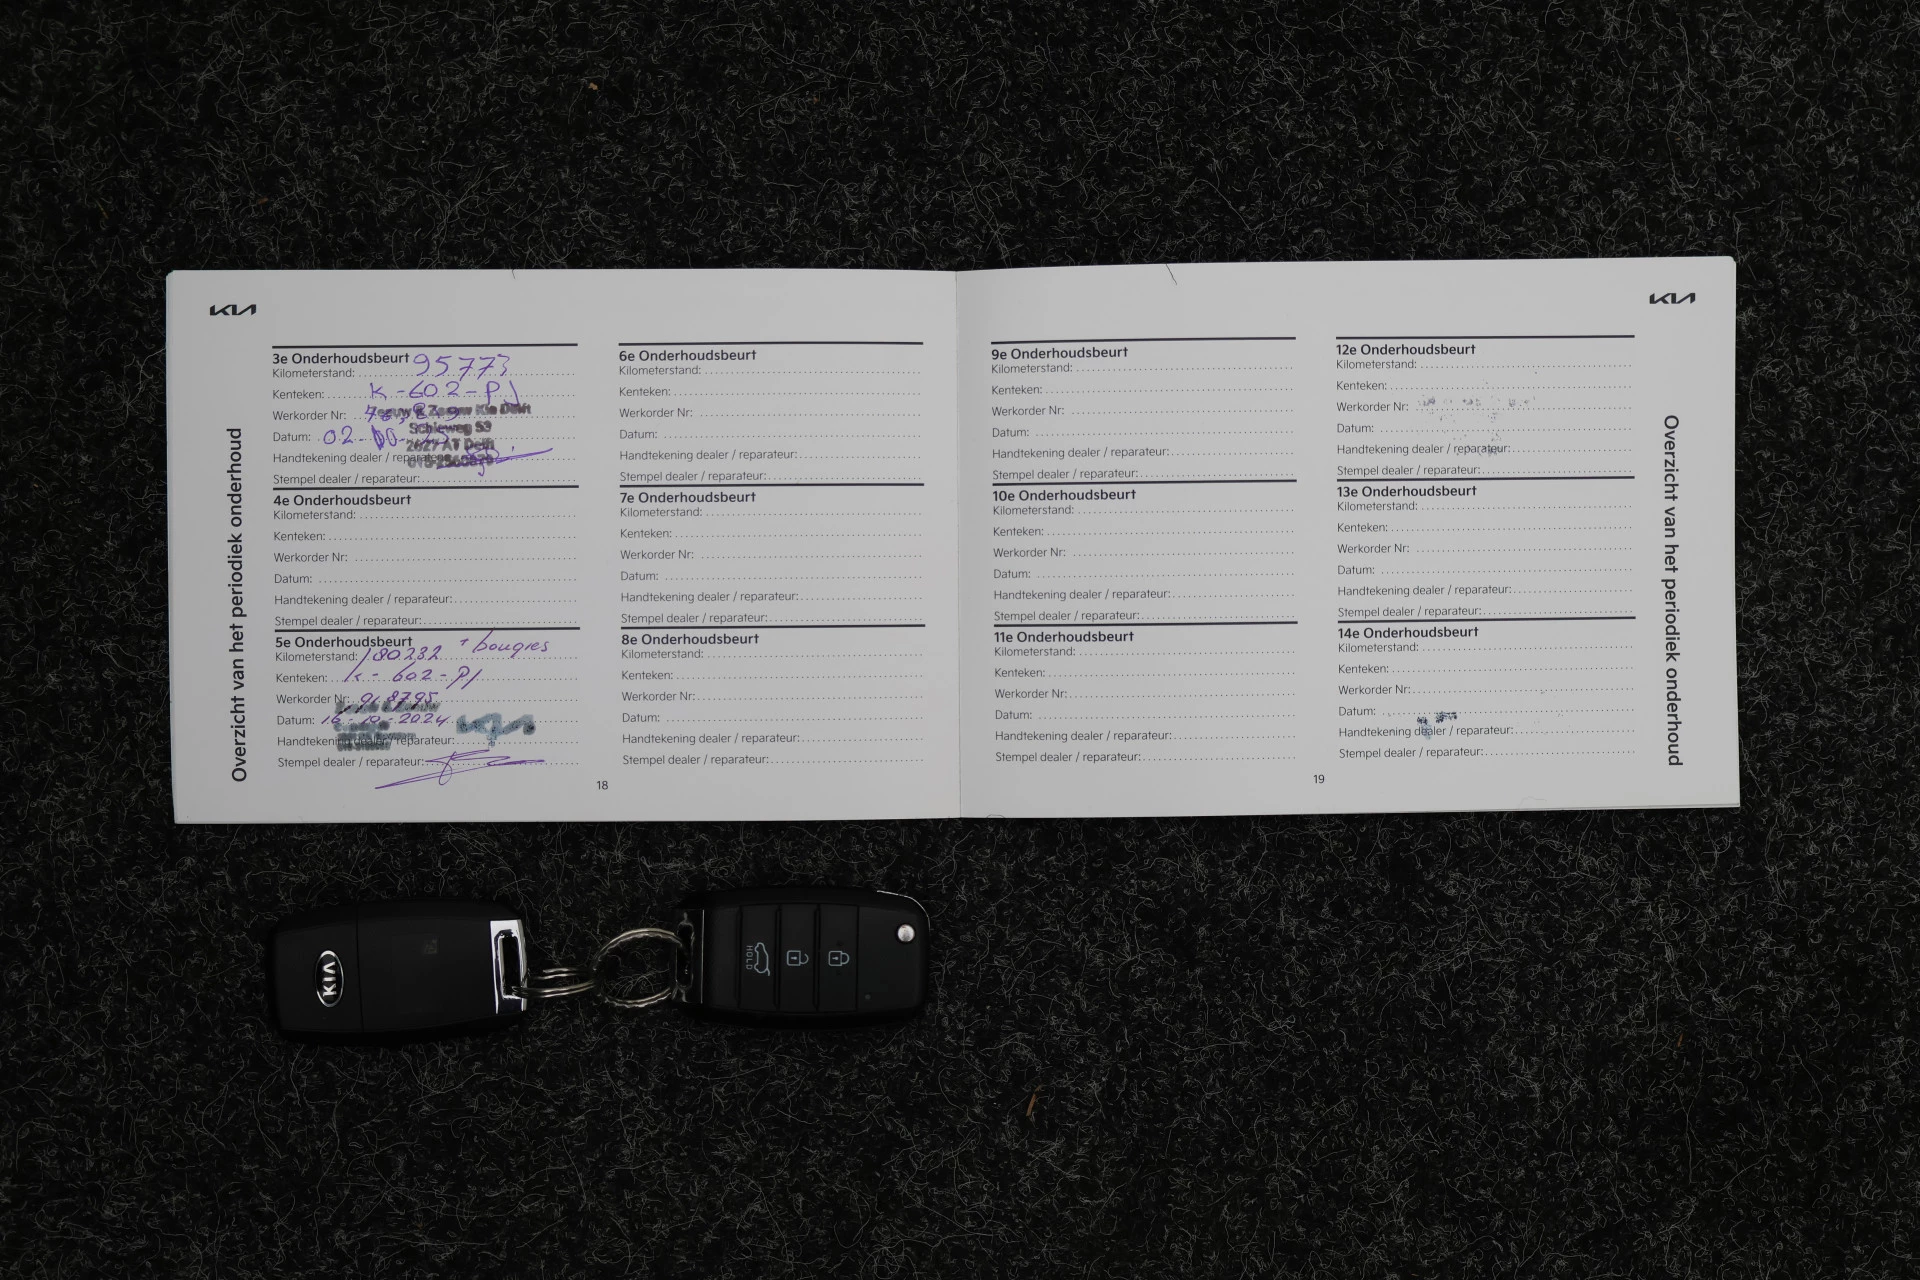 KIA
Overzicht van het periodiek onderhoud
3e Onderhoudsbeurt
Kilometerstand: 95773
Kenteken: K-602-PJ
Werkorder Nr:
Datum: 02-
Handtekening dealer / reparateur:
Stempel dealer / reparateur:
Zeeuw & Zeeuw Kia Delft
Schieweg 53
2627 AT Delft
4e Onderhoudsbeurt
Kilometerstand:
Kenteken:
Werkorder Nr:
Datum:
Handtekening dealer / reparateur:
Stempel dealer / reparateur:
5e Onderhoudsbeurt + bougies
Kilometerstand: 180232
Kenteken: K-602-PJ
Werkorder Nr:
Datum: 16-10-2024
Handtekening dealer / reparateur:
KIA
Stempel dealer / reparateur:
6e Onderhoudsbeurt
Kilometerstand:
Kenteken:
Werkorder Nr:
Datum:
Handtekening dealer / reparateur:
Stempel dealer / reparateur:
7e Onderhoudsbeurt
Kilometerstand:
Kenteken:
Werkorder Nr:
Datum:
Handtekening dealer / reparateur:
Stempel dealer / reparateur:
8e Onderhoudsbeurt
Kilometerstand:
Kenteken:
Werkorder Nr:
Datum:
Handtekening dealer / reparateur:
Stempel dealer / reparateur:
18
9e Onderhoudsbeurt
Kilometerstand:
Kenteken:
Werkorder Nr:
Datum:
Handtekening dealer / reparateur:
Stempel dealer / reparateur:
10e Onderhoudsbeurt
Kilometerstand:
Kenteken:
Werkorder Nr:
Datum:
Handtekening dealer / reparateur:
Stempel dealer / reparateur:
11e Onderhoudsbeurt
Kilometerstand:
Kenteken:
Werkorder Nr:
Datum:
Handtekening dealer / reparateur:
Stempel dealer / reparateur:
KIA
12e Onderhoudsbeurt
Kilometerstand:
Kenteken:
Werkorder Nr:
Datum:
Handtekening dealer / reparateur:
Stempel dealer / reparateur:
13e Onderhoudsbeurt
Kilometerstand:
Kenteken:
Werkorder Nr:
Datum:
Handtekening dealer / reparateur:
Stempel dealer / reparateur:
14e Onderhoudsbeurt
Kilometerstand:
Kenteken:
Werkorder Nr:
Datum:
Handtekening dealer / reparateur:
Stempel dealer / reparateur:
Overzicht van het periodiek onderhoud
19
KIA
HOLD